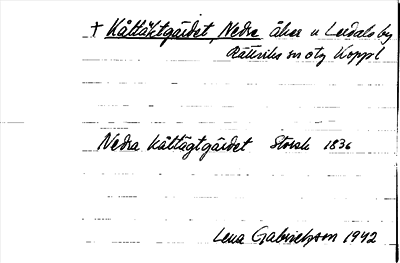 † Kåltäktgärdet, Nedre åker u Lerdals by
Rättviks sn otg Koppl
Nedra Kåltägtgärdet Storsk 1836
Lena Gabrielsson 1942